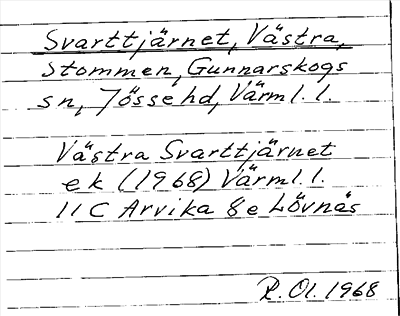 Svarttjärnet, Västra,
Stommen, Gunnarskogs
sn, Jösse hd, Värml. l.
Västra Svarttjärnet
ek (1968) Värml. l.
11 C Arvika 8e Lövnäs
R. Ol. 1968